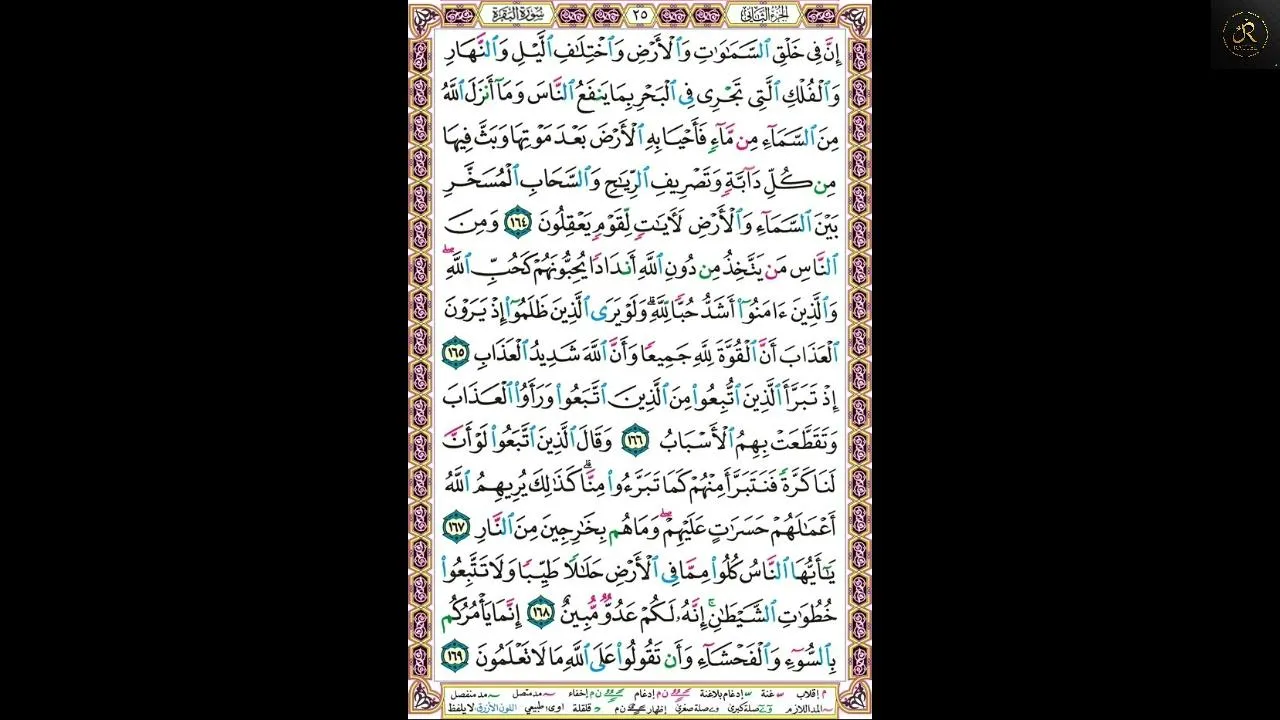 الجزء الثاني ٢٥ سورة البقرة
إِنَّ فِي خَلْقِ ٱلسَّمَٰوَٰتِ وَٱلْأَرْضِ وَٱخْتِلَٰفِ ٱلَّيْلِ وَٱلنَّهَارِ
وَٱلْفُلْكِ ٱلَّتِي تَجْرِي فِي ٱلْبَحْرِ بِمَا يَنفَعُ ٱلنَّاسَ وَمَآ أَنزَلَ ٱللَّهُ
مِنَ ٱلسَّمَآءِ مِن مَّآءٍ فَأَحْيَا بِهِ ٱلْأَرْضَ بَعْدَ مَوْتِهَا وَبَثَّ فِيهَا
مِن كُلِّ دَآبَّةٍ وَتَصْرِيفِ ٱلرِّيَٰحِ وَٱلسَّحَابِ ٱلْمُسَخَّرِ
بَيْنَ ٱلسَّمَآءِ وَٱلْأَرْضِ لَأَيَٰتٍ لِّقَوْمٍ يَعْقِلُونَ ١٦٤ وَمِنَ
ٱلنَّاسِ مَن يَتَّخِذُ مِن دُونِ ٱللَّهِ أَندَادًا يُحِبُّونَهُمْ كَحُبِّ ٱللَّهِ ۖ
وَٱلَّذِينَ ءَامَنُوٓا۟ أَشَدُّ حُبًّا لِّلَّهِ ۗ وَلَوْ يَرَى ٱلَّذِينَ ظَلَمُوٓا۟ إِذْ يَرَوْنَ
ٱلْعَذَابَ أَنَّ ٱلْقُوَّةَ لِلَّهِ جَمِيعًا وَأَنَّ ٱللَّهَ شَدِيدُ ٱلْعَذَابِ ١٦٥
إِذْ تَبَرَّأَ ٱلَّذِينَ ٱتُّبِعُوا۟ مِنَ ٱلَّذِينَ ٱتَّبَعُوا۟ وَرَأَوُا۟ ٱلْعَذَابَ
وَتَقَطَّعَتْ بِهِمُ ٱلْأَسْبَابُ ١٦٦ وَقَالَ ٱلَّذِينَ ٱتَّبَعُوا۟ لَوْ أَنَّ
لَنَا كَرَّةً فَنَتَبَرَّأَ مِنْهُمْ كَمَا تَبَرَّءُوا۟ مِنَّا ۗ كَذَٰلِكَ يُرِيهِمُ ٱللَّهُ
أَعْمَٰلَهُمْ حَسَرَٰتٍ عَلَيْهِمْ ۖ وَمَا هُم بِخَٰرِجِينَ مِنَ ٱلنَّارِ ١٦٧
يَٰٓأَيُّهَا ٱلنَّاسُ كُلُوا۟ مِمَّا فِي ٱلْأَرْضِ حَلَٰلًا طَيِّبًا وَلَا تَتَّبِعُوا۟
خُطُوَٰتِ ٱلشَّيْطَٰنِ ۚ إِنَّهُۥ لَكُمْ عَدُوٌّ مُّبِينٌ ١٦٨ إِنَّمَا يَأْمُرُكُم
بِٱلسُّوٓءِ وَٱلْفَحْشَآءِ وَأَن تَقُولُوا۟ عَلَى ٱللَّهِ مَا لَا تَعْلَمُونَ ١٦٩
م إقلاب غنة إدغام بلاغنة ن م إدغام ن م إخفاء مد متصل مد منفصل
المد اللازم صلة كبرى صلة صغرى إظهار ن م قلقلة اوى: طبيعي اللون الأزرق لا يلفظ